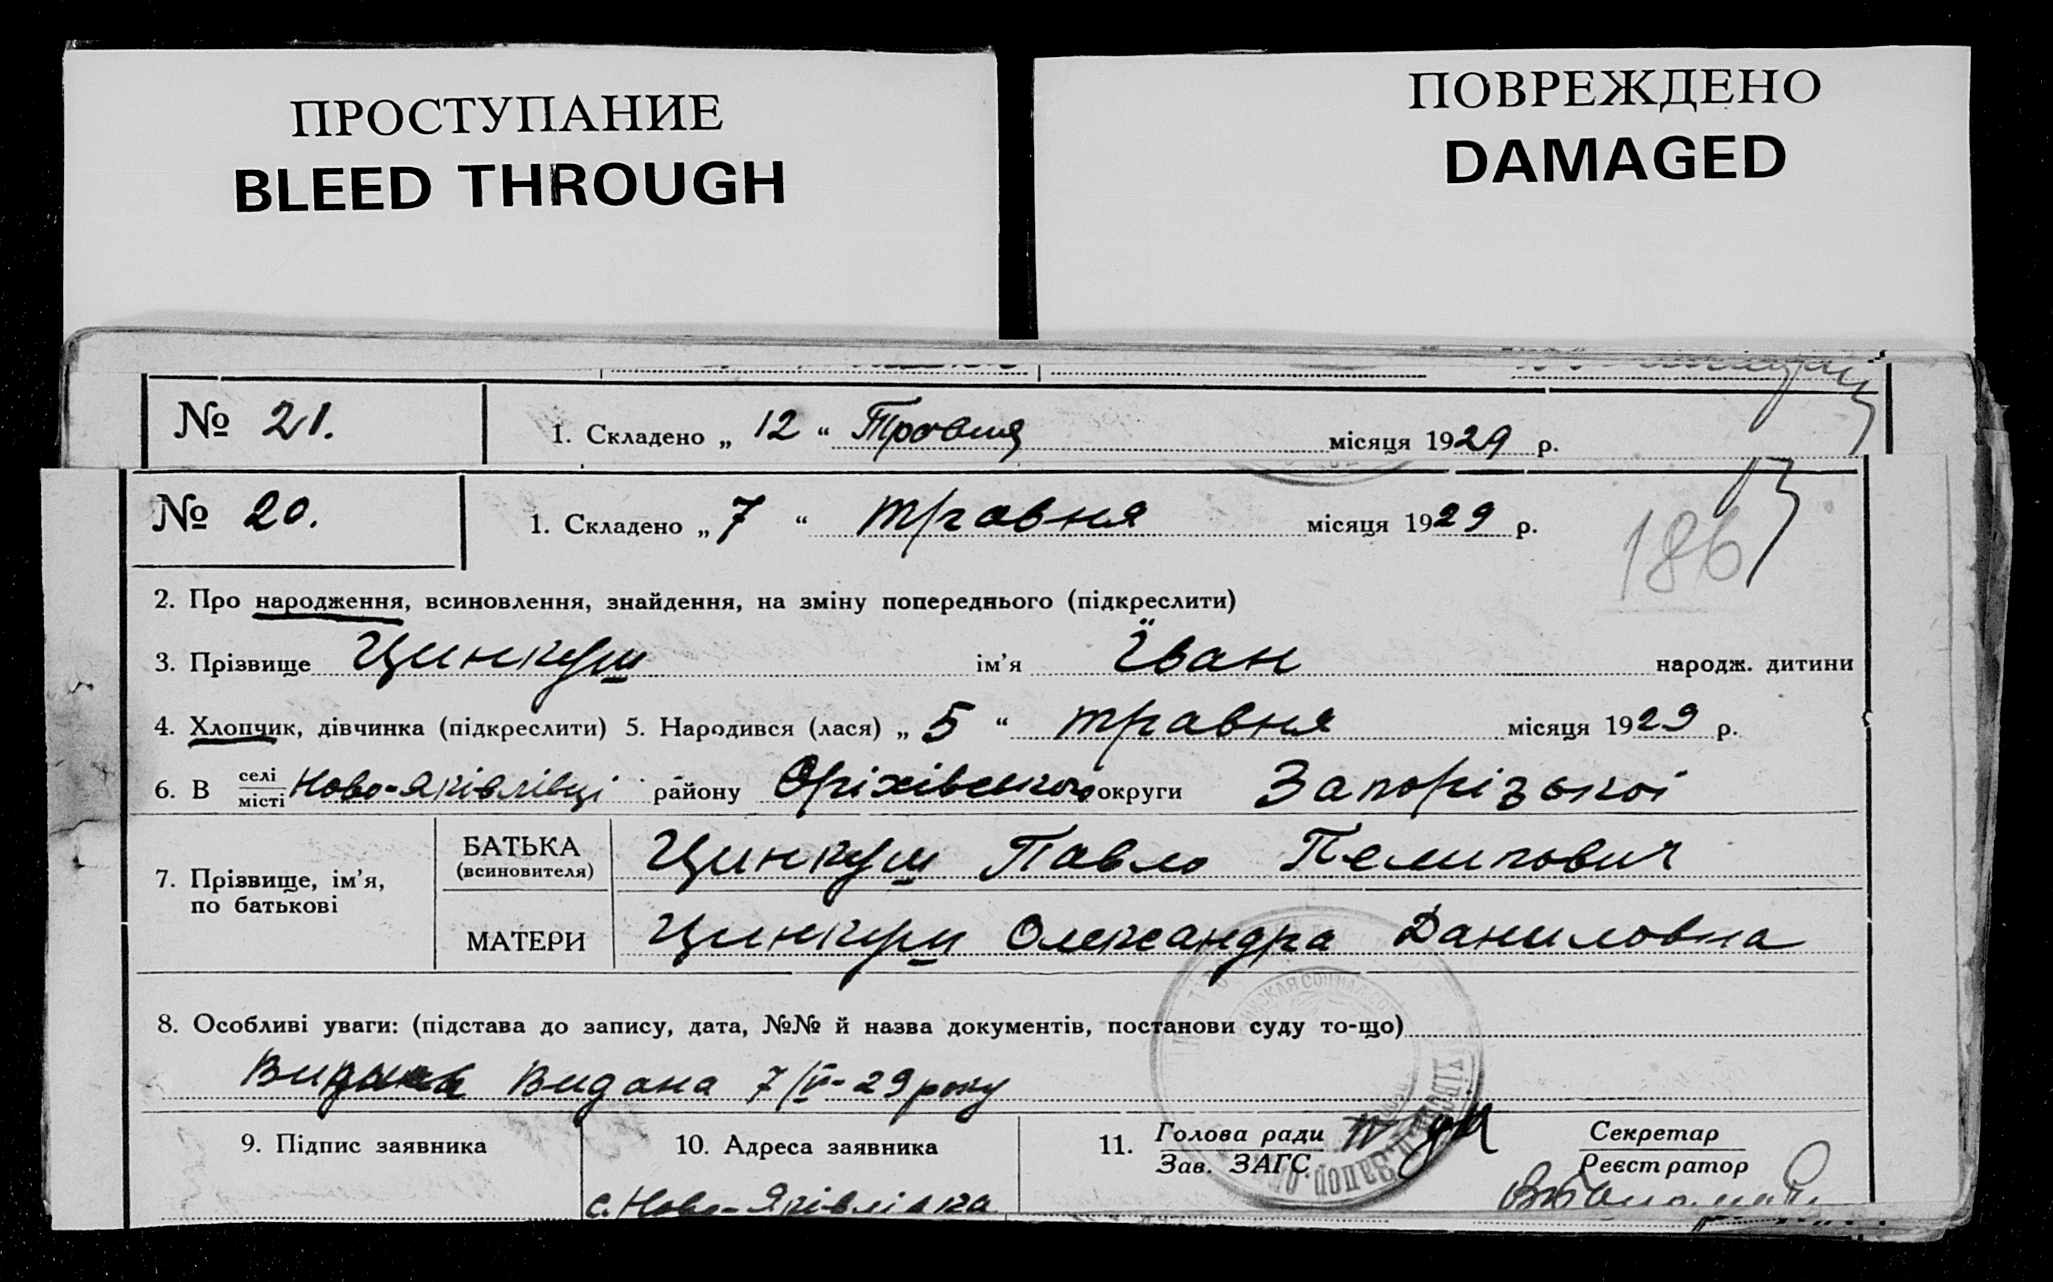 ПРОСТУПАНИЕ
BLEED THROUGH
ПОВРЕЖДЕНО
DAMAGED
№ 21.
1. Складено „ 12 “ Тровня місяця 1929 р.
№ 20.
1. Складено „ 7 “ травня місяця 1929 р.
186
2. Про народження, всиновлення, знайдення, на зміну попереднього (підкреслити)
3. Прізвище Цинкуш ім’я Їван народж. дитини
4. Хлопчик, дівчинка (підкреслити) 5. Народився (лася) „ 5 “ травня місяця 1929 р.
6. В селі місті Ново-Яківлівці району Оріхівського округи Запорізької
7. Прізвище, ім’я, по батькові
БАТЬКА (всиновителя) Цинкуш Павло Пелипович
МАТЕРИ Цинкуш Олександра Даниловна
8. Особливі уваги: (підстава до запису, дата, №№ й назва документів, постанови суду то-що)
Видана 7/V-29 року
9. Підпис заявника
10. Адреса заявника
с. Ново-Яківлівка
11. Голова ради
Зав. ЗАГС
Секретар
Реєстратор